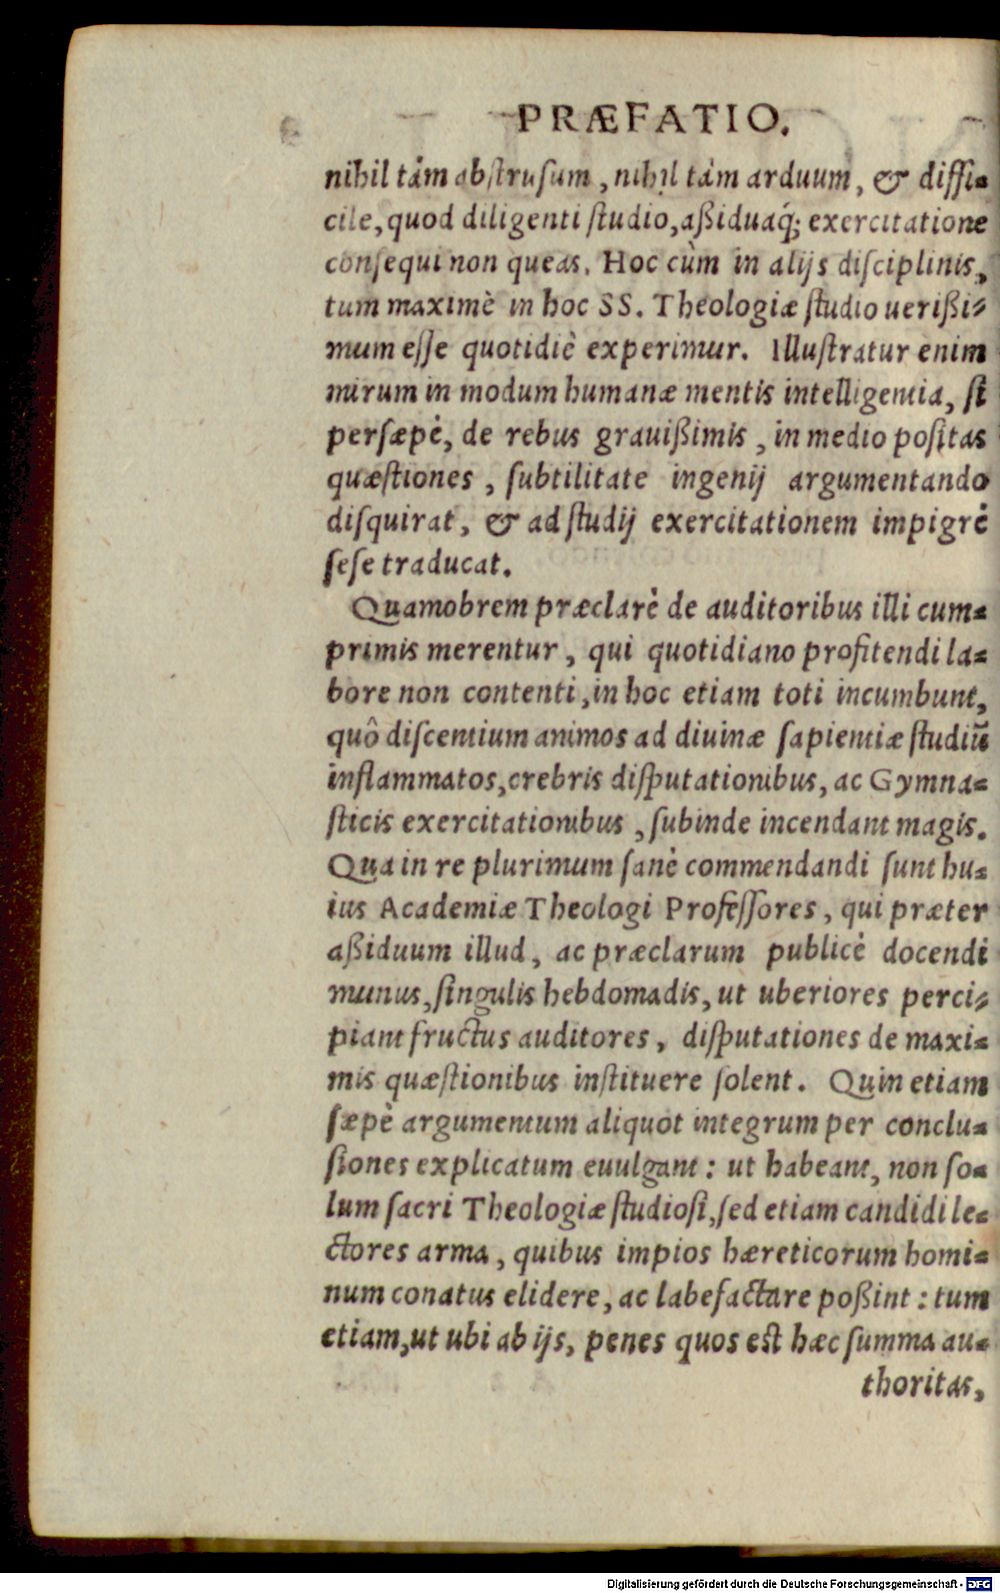 PRÆFATIO.
nihil tàm abstrusum, nihil tàm arduum, & diffi-
cile, quod diligenti studio, aßiduaq́; exercitatione
consequi non queas. Hoc cùm in alijs disciplinis,
tum maximè in hoc SS. Theologiæ studio uerißi-
mum esse quotidiè experimur. Illustratur enim
mirum in modum humanæ mentis intelligentia, si
persæpè, de rebus grauißimis, in medio positas
quæstiones, subtilitate ingenij argumentando
disquirat, & ad studij exercitationem impigrè
sese traducat.
Quamobrem præclarè de auditoribus illi cum-
primis merentur, qui quotidiano profitendi la-
bore non contenti, in hoc etiam toti incumbunt,
quô discentium animos ad diuinæ sapientiæ studiū
inflammatos, crebris disputationibus, ac Gymna-
sticis exercitationibus, subinde incendant magis.
Qua in re plurimum sanè commendandi sunt hu-
ius Academiæ Theologi Professores, qui præter
aßiduum illud, ac præclarum publicè docendi
munus, singulis hebdomadis, ut uberiores perci-
piant fructus auditores, disputationes de maxi-
mis quæstionibus instituere solent. Quin etiam
sæpè argumentum aliquot integrum per conclu-
siones explicatum euulgant: ut habeant, non so-
lum sacri Theologiæ studiosi, sed etiam candidi le-
ctores arma, quibus impios hæreticorum homi-
num conatus elidere, ac labefactare poßint: tum
etiam, ut ubi ab ijs, penes quos est hæc summa au-
thoritas,
Digitalisierung gefördert durch die Deutsche Forschungsgemeinschaft - DFG